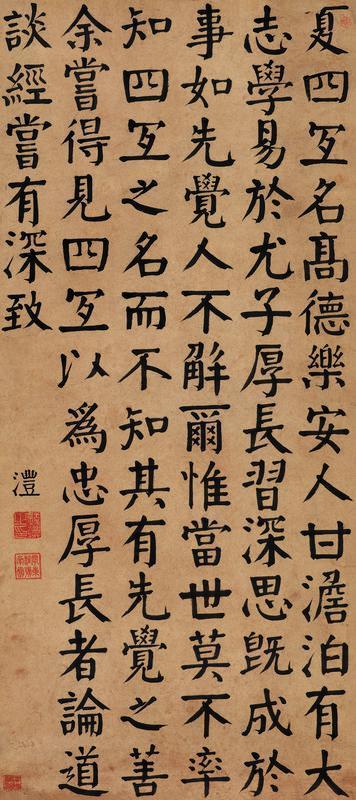 夏四互名髙德樂安人甘澹泊有大
志學易於尤子厚長習深思既成於
事如先覺人不解爾惟當世莫不率
知四互之名而不知其有先覺之善
余嘗得見四互以為忠厚長者論道
談經嘗有深致
澧